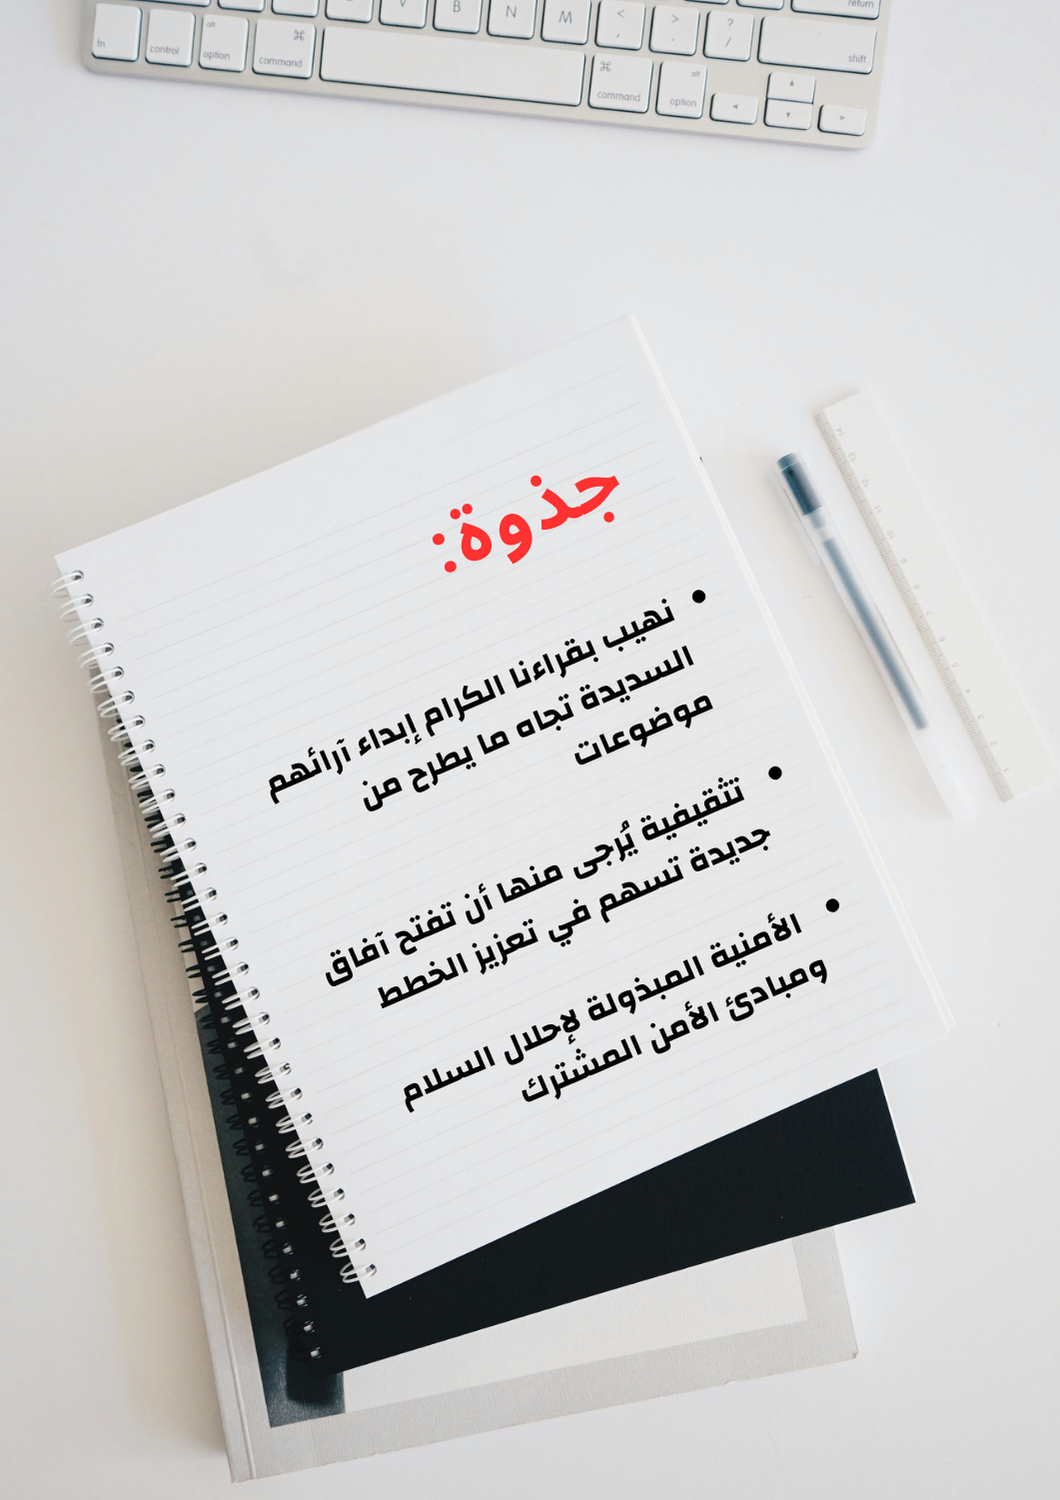 return
V B N M < , > . ? /
shift
fn control alt option ⌘ command ⌘ command alt option
جذوة:
• نهيب بقراءنا الكرام إبداء آرائهم
السديدة تجاه ما يطرح من
موضوعات
• تثقيفية يُرجى منها أن تفتح آفاق
جديدة تسهم في تعزيز الخطط
• الأمنية المبذولة لإحلال السلام
ومبادئ الأمن المشترك